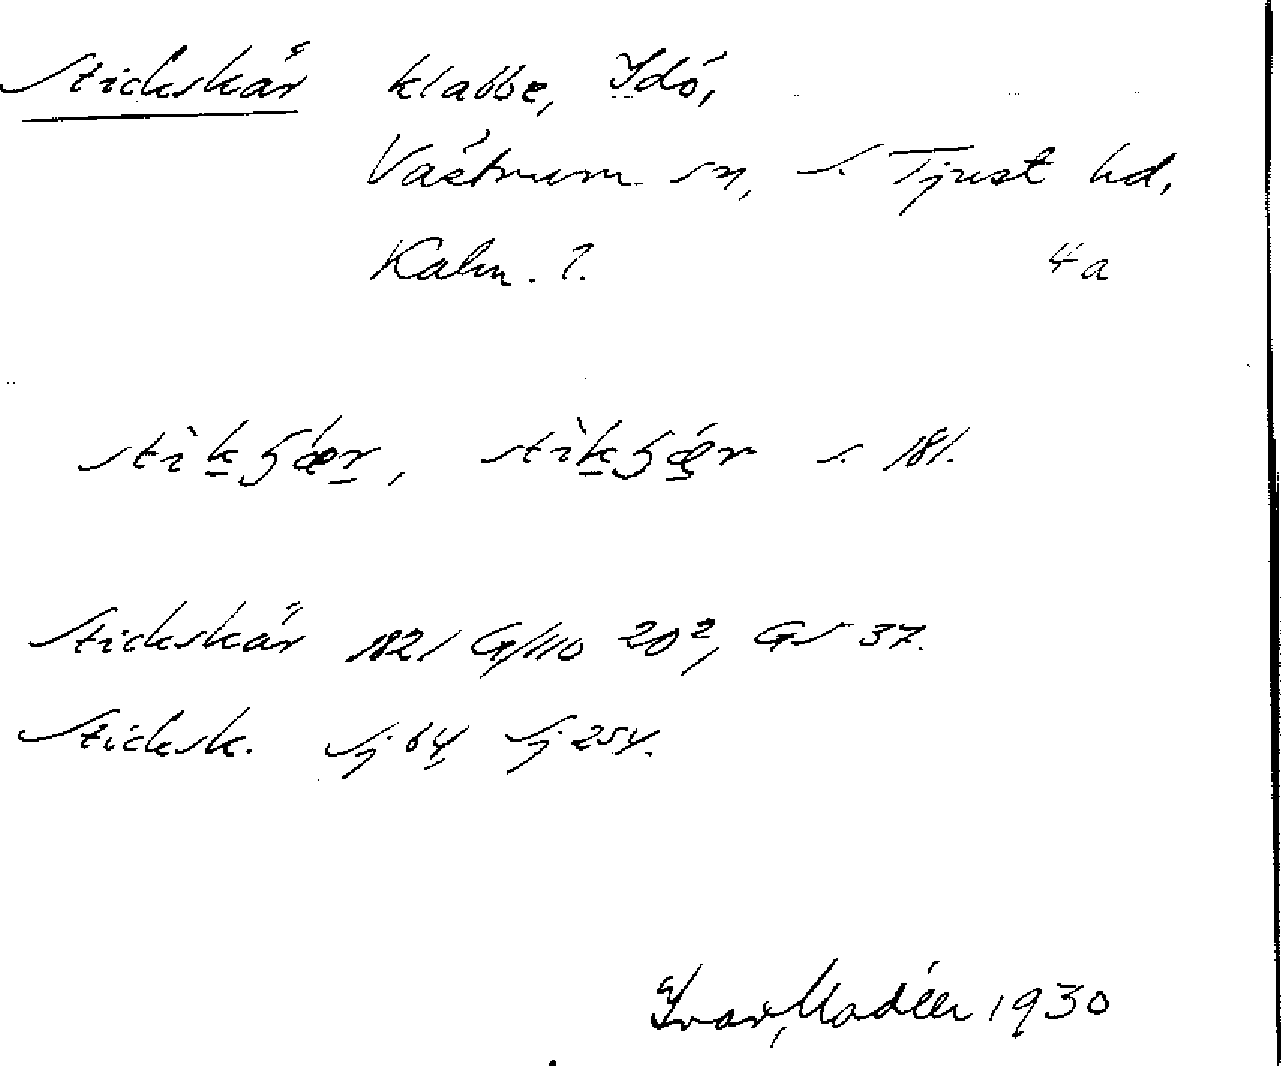 Stickskär klabbe, Idö,
Västrum sn, S. Tjust hd,
Kalm. l. 4a
stìkʂǽr, stìkʂǽr s. 181.
Stickskär 1821 G/110 20², GS 37.
Sticksk. Sj 64 Sj 254.
Ivar Modéer 1930